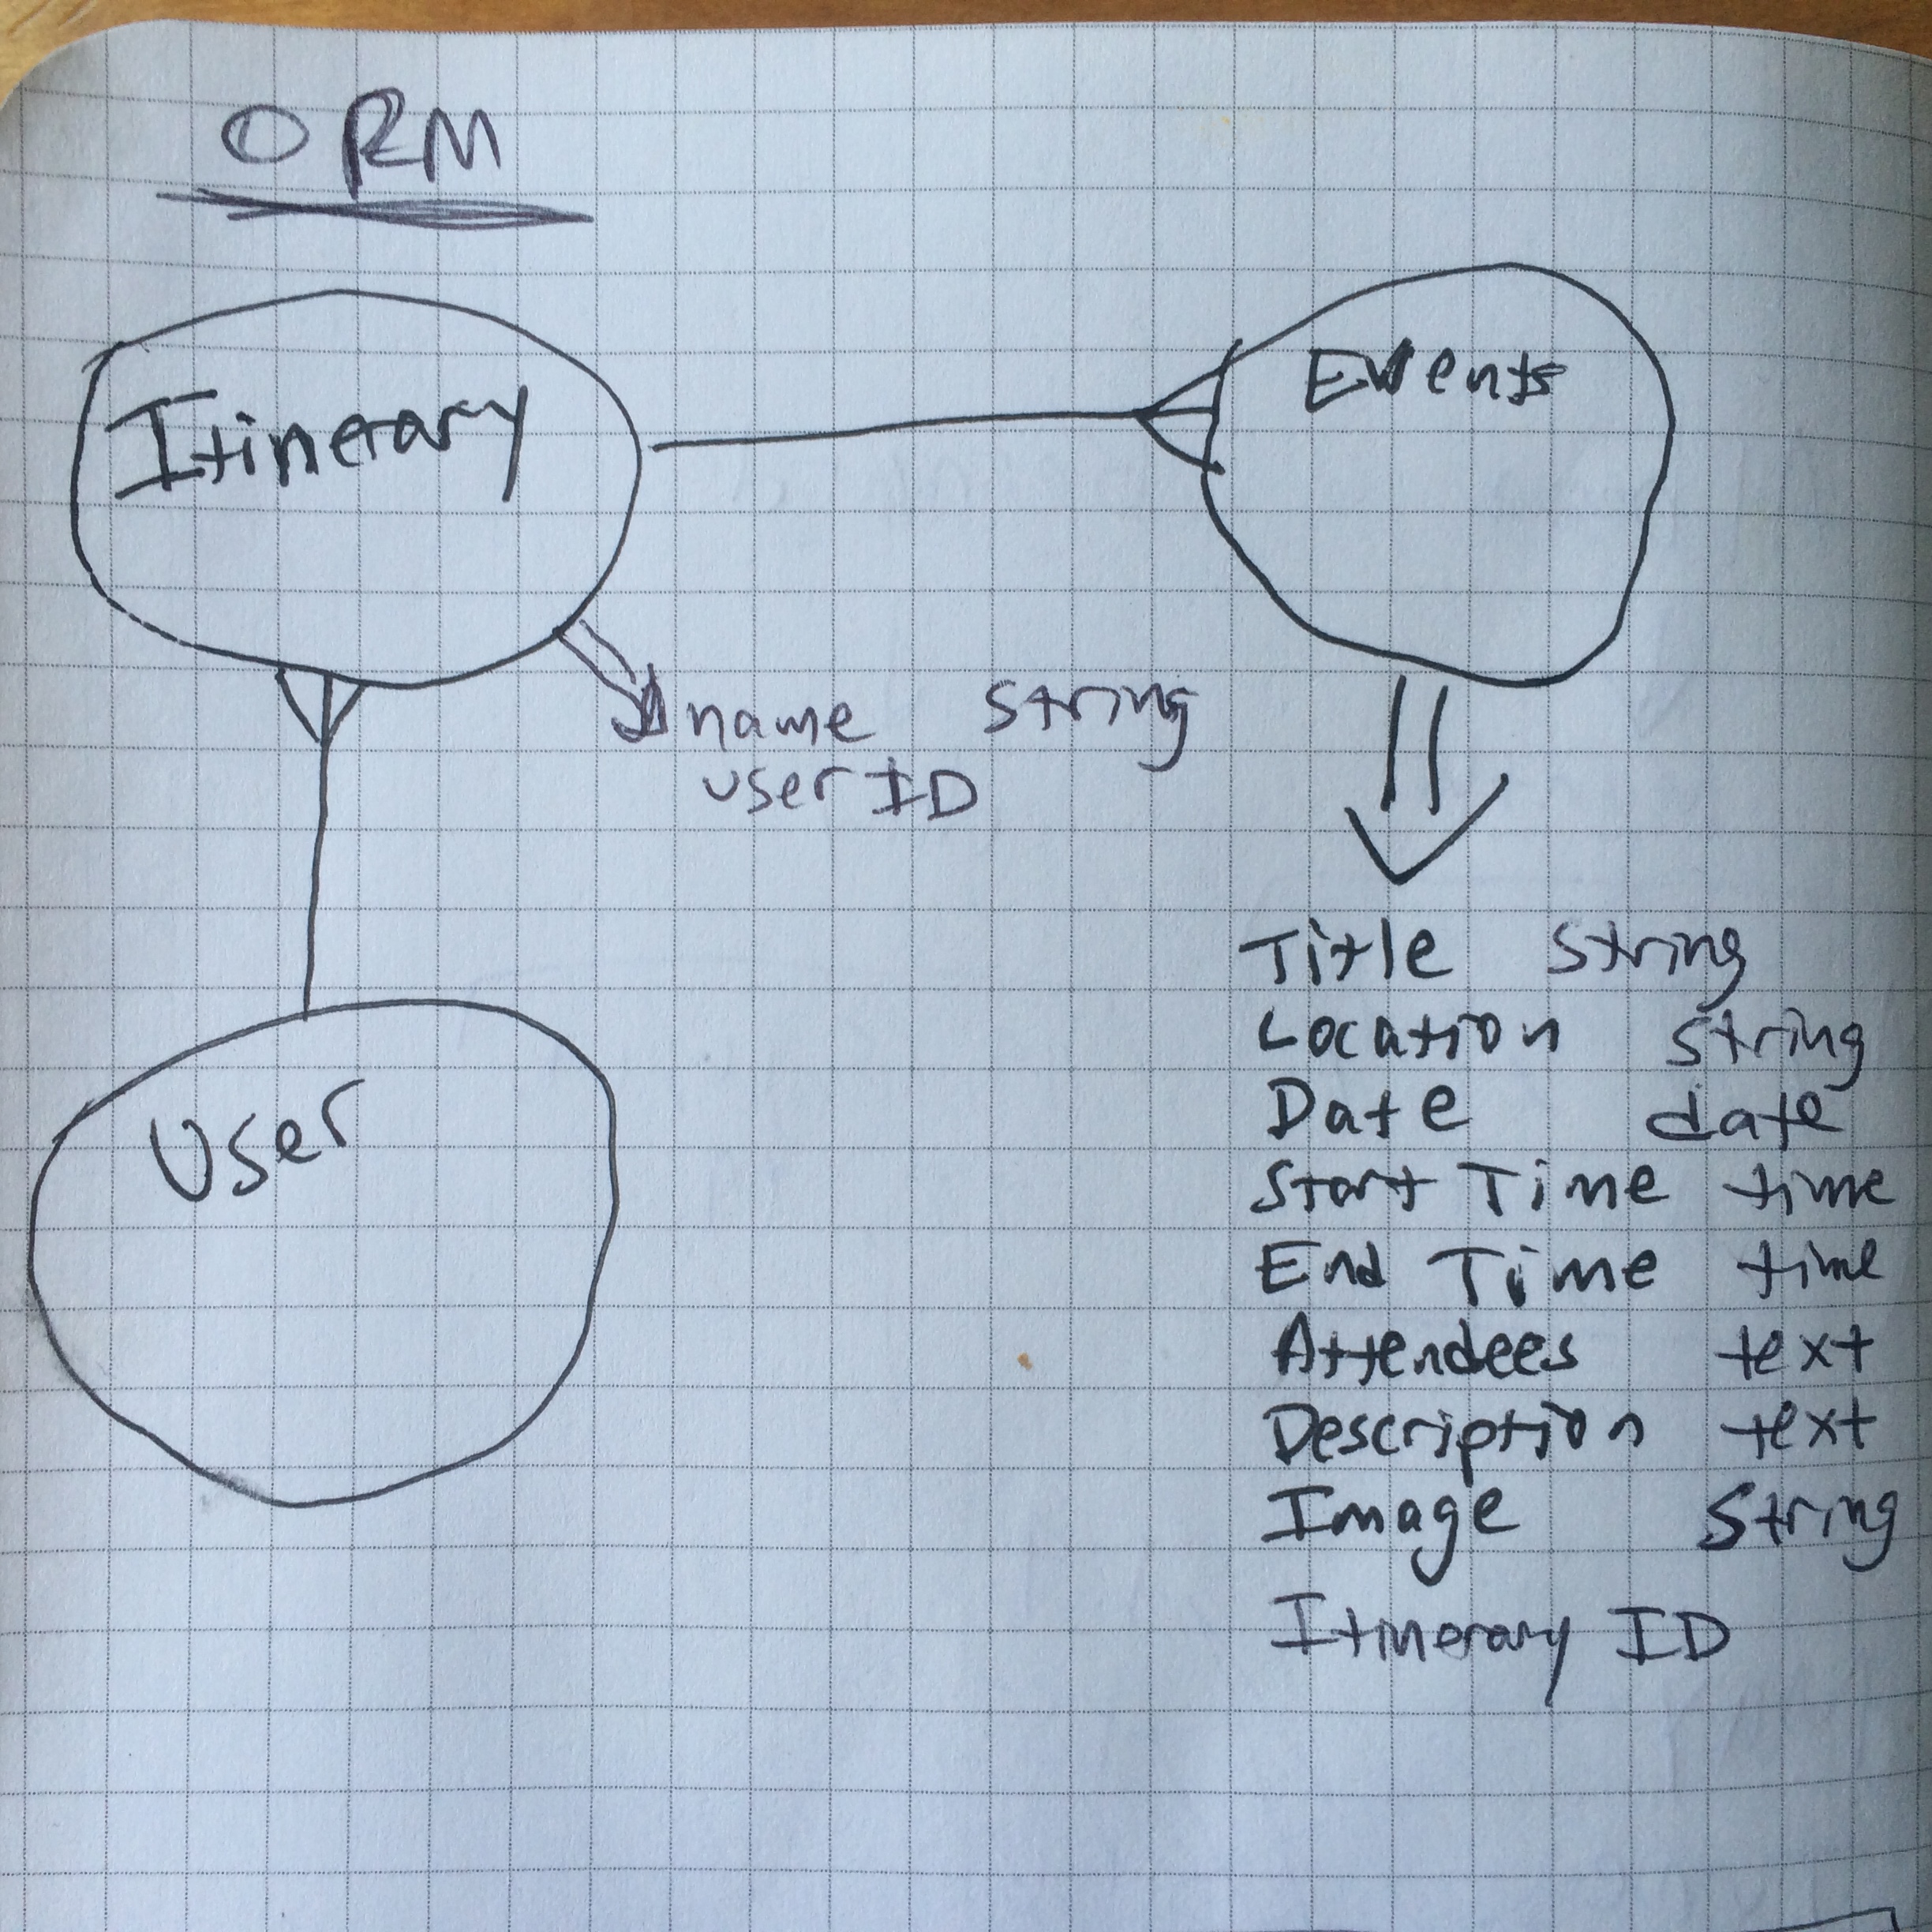 ORM
Itinerary
Events
name string
user ID
User
Title string
Location string
Date date
Start Time time
End Time time
Attendees text
Description text
Image string
Itinerary ID